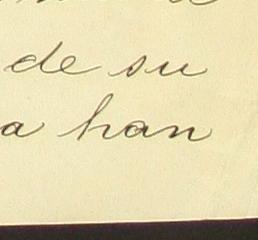 de su
a han